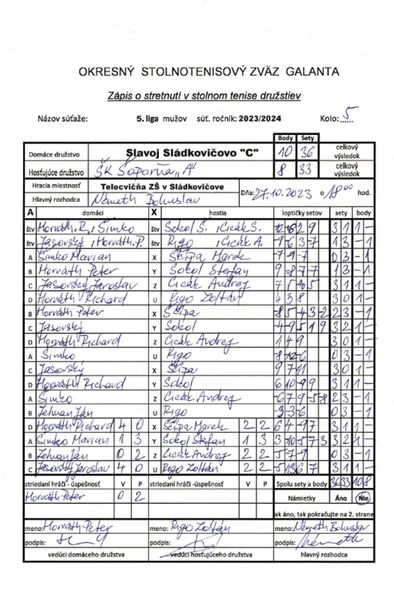 OKRESNÝ STOLNOTENISOVÝ ZVÄZ GALANTA
Zápis o stretnutí v stolnom tenise družstiev
Názov súťaže: 5. liga mužov súť. ročník: 2023/2024 Kolo: 5
Body Sety
Domáce družstvo Slavoj Sládkovičovo "C" 10 36 celkový výsledok
Hosťujúce družstvo ŠK Šoporňa "A" 8 33 celkový výsledok
Hracia miestnosť Telocvičňa ZŠ v Sládkovičove Dňa: 27.10.2023 o 18:00 hod.
Hlavný rozhodca Németh Bohuslav
A domáci X hostia loptičky setov sety body
štv Horváth R., Šimko štv Sokol S. Cicák S. 3 1 1 -
štv Jasovský, Horváth P. štv Rigo, Cicák A. 1 3 - 1
A Šimko Marian X Ščipa Marek 7 9 7 0 3 - 1
B Horváth Peter Y Sokol Štefan 9 8 7 7 1 3 - 1
C Jasovský Jaroslav Z Cicák Andrej 3 1 1 -
D Horváth Richard U Rigo Zoltán 4 3 8 3 0 1 -
B Horváth Peter X Ščipa 2 3 - 1
C Jasovský Y Sokol 3 2 1 -
D Horváth Richard Z Cicák Andrej 1 4 9 3 0 1 -
A Šimko U Rigo 0 3 - 1
C Jasovský X Ščipa 9 7 11 3 0 1 -
D Horváth Richard Y Sokol 3 1 1 -
A Šimko Z Cicák Andrej 2 3 - 1
B Zeman Ján U Rigo 0 3 - 1
D Horváth Richard 4 0 X Ščipa Marek 2 2 6 4 9 7 3 1 1 -
A Šimko Marian 1 3 Y Sokol Štefan 1 3 3 2 1 -
B Zeman Ján 0 2 Z Cicák Andrej 2 2 5 7 9 0 3 - 1
C Jasovský Jaroslav 4 0 U Rigo Zoltán 2 2 3 1 1 -
striedaní hráči - úspešnosť V P striedaní hráči - úspešnosť V P Spolu sety a body 36 33 10 8
Horváth Peter 0 2 Námietky Áno Nie
ak áno, tak pokračujte na 2. strane
meno: Horváth Peter meno: Rigo Zoltán meno: Németh Bohuslav
podpis: podpis: podpis:
vedúci domáceho družstva vedúci hosťujúceho družstva hlavný rozhodca